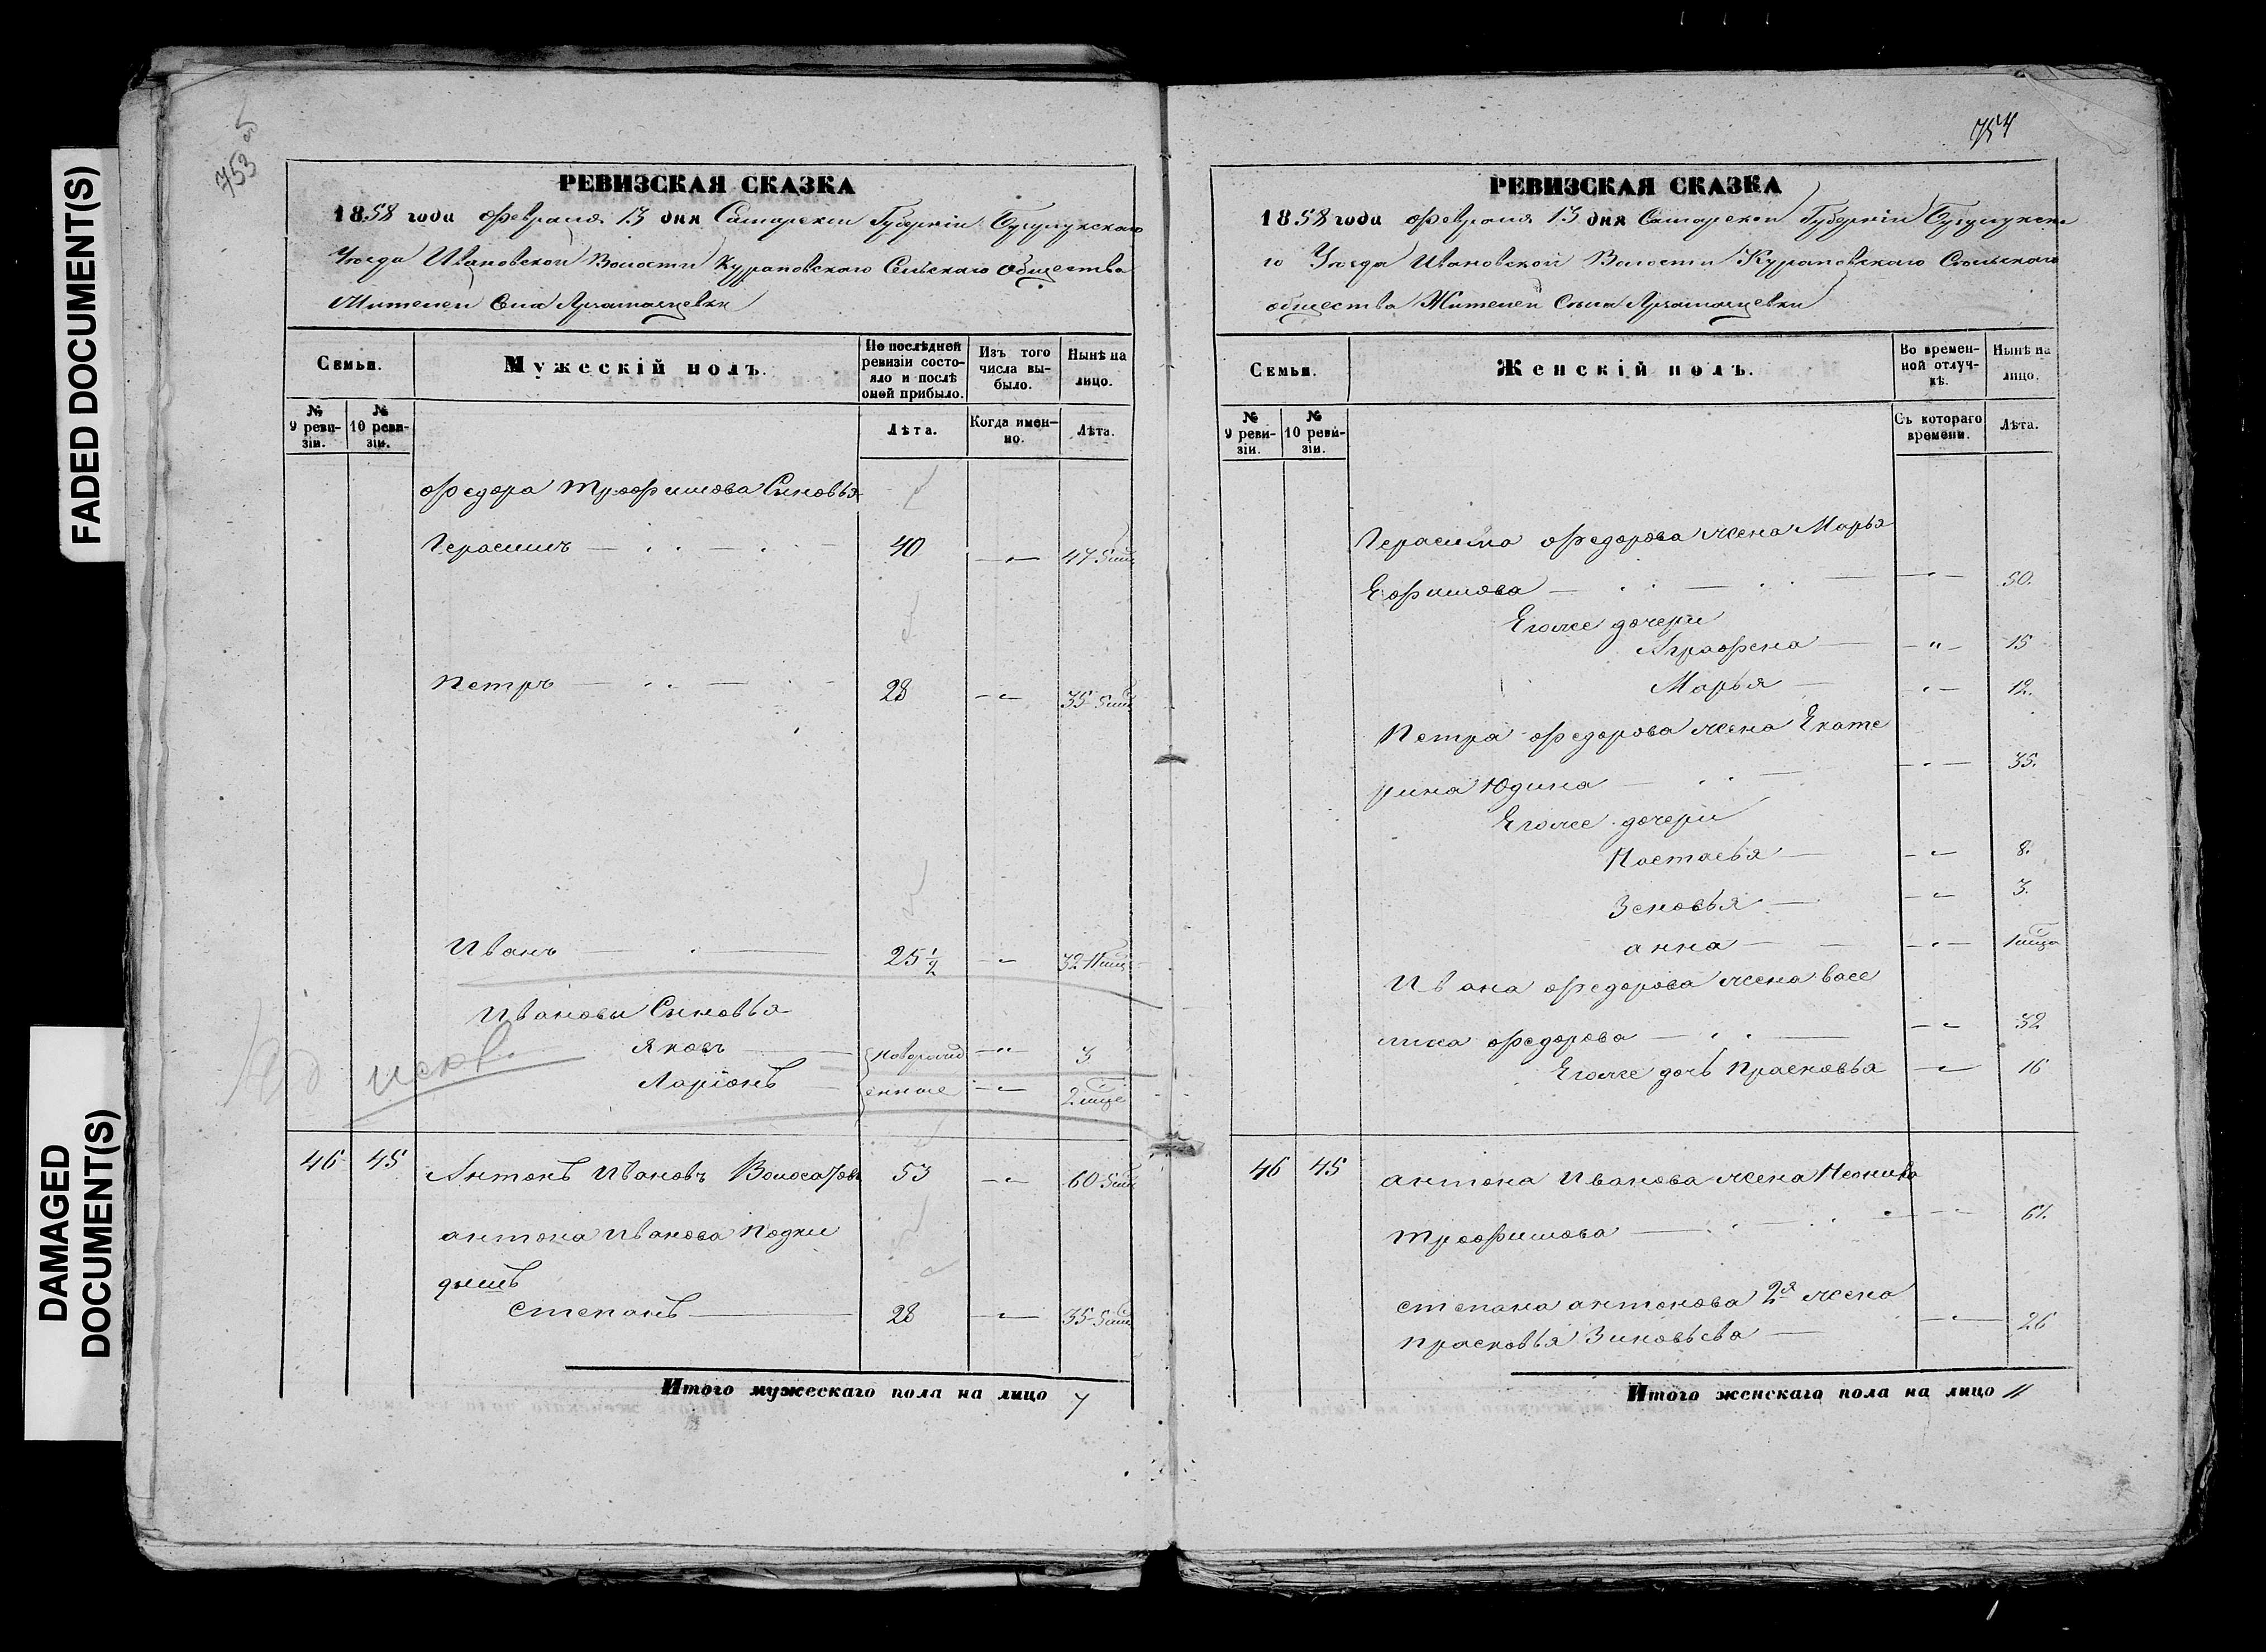 FADED DOCUMENT(S)
DAMAGED
DOCUMENT(S)
753
РЕВИЗСКАЯ СКАЗКА
1858 года февраля 13 дня Самарской Губерніи Бугурусланскаго
Уѣзда Ивановской Волости Сельскаго общества
Жителей Села
Семьи.
Мужескій полъ.
По послѣдней ревизіи состояло и послѣ оной прибыло.
Изъ того числа выбыло.
Нынѣ на лицо.
№ 9 ревизіи.
№ 10 ревизіи.
Лѣта.
Когда именно.
Лѣта.
Федора Трофимова Сыновья
Герасимъ 40 47
Петръ 28 35
Иванъ 25 1/2 32
Ивановы Сыновья
Яковъ новорожд 3
Ларіонъ енные 2
46 45 Антонъ Ивановъ 53 60
антона Иванова Подки
дышъ
Степанъ 28 35
Итого мужескаго пола на лицо 7
754
РЕВИЗСКАЯ СКАЗКА
1858 года февраля 13 дня Самарской Губерніи
го Уѣзда Ивановской Волости Сельскаго
общества Жителей Села
Семьи.
Женскій полъ.
Во временной отлучкѣ.
Нынѣ на лицо.
№ 9 ревизіи.
№ 10 ревизіи.
Съ котораго времени.
Лѣта.
Герасима Федорова жена Марья
Ефимова 50.
Егоже дочери
Аграфена 15
Марья 12.
Петра Федорова жена Екате
рина Юдина 35.
Егоже дочери
Настасья 8.
Зеновья 3.
анна
Ивана Федорова жена васс
лиса Федорова 32
Егоже дочь Прасковья 16
46 45 антона Иванова жена
Трофимова 61.
степана антонова 2я жена
прасковья Зиновьева 26
Итого женскаго пола на лицо 11